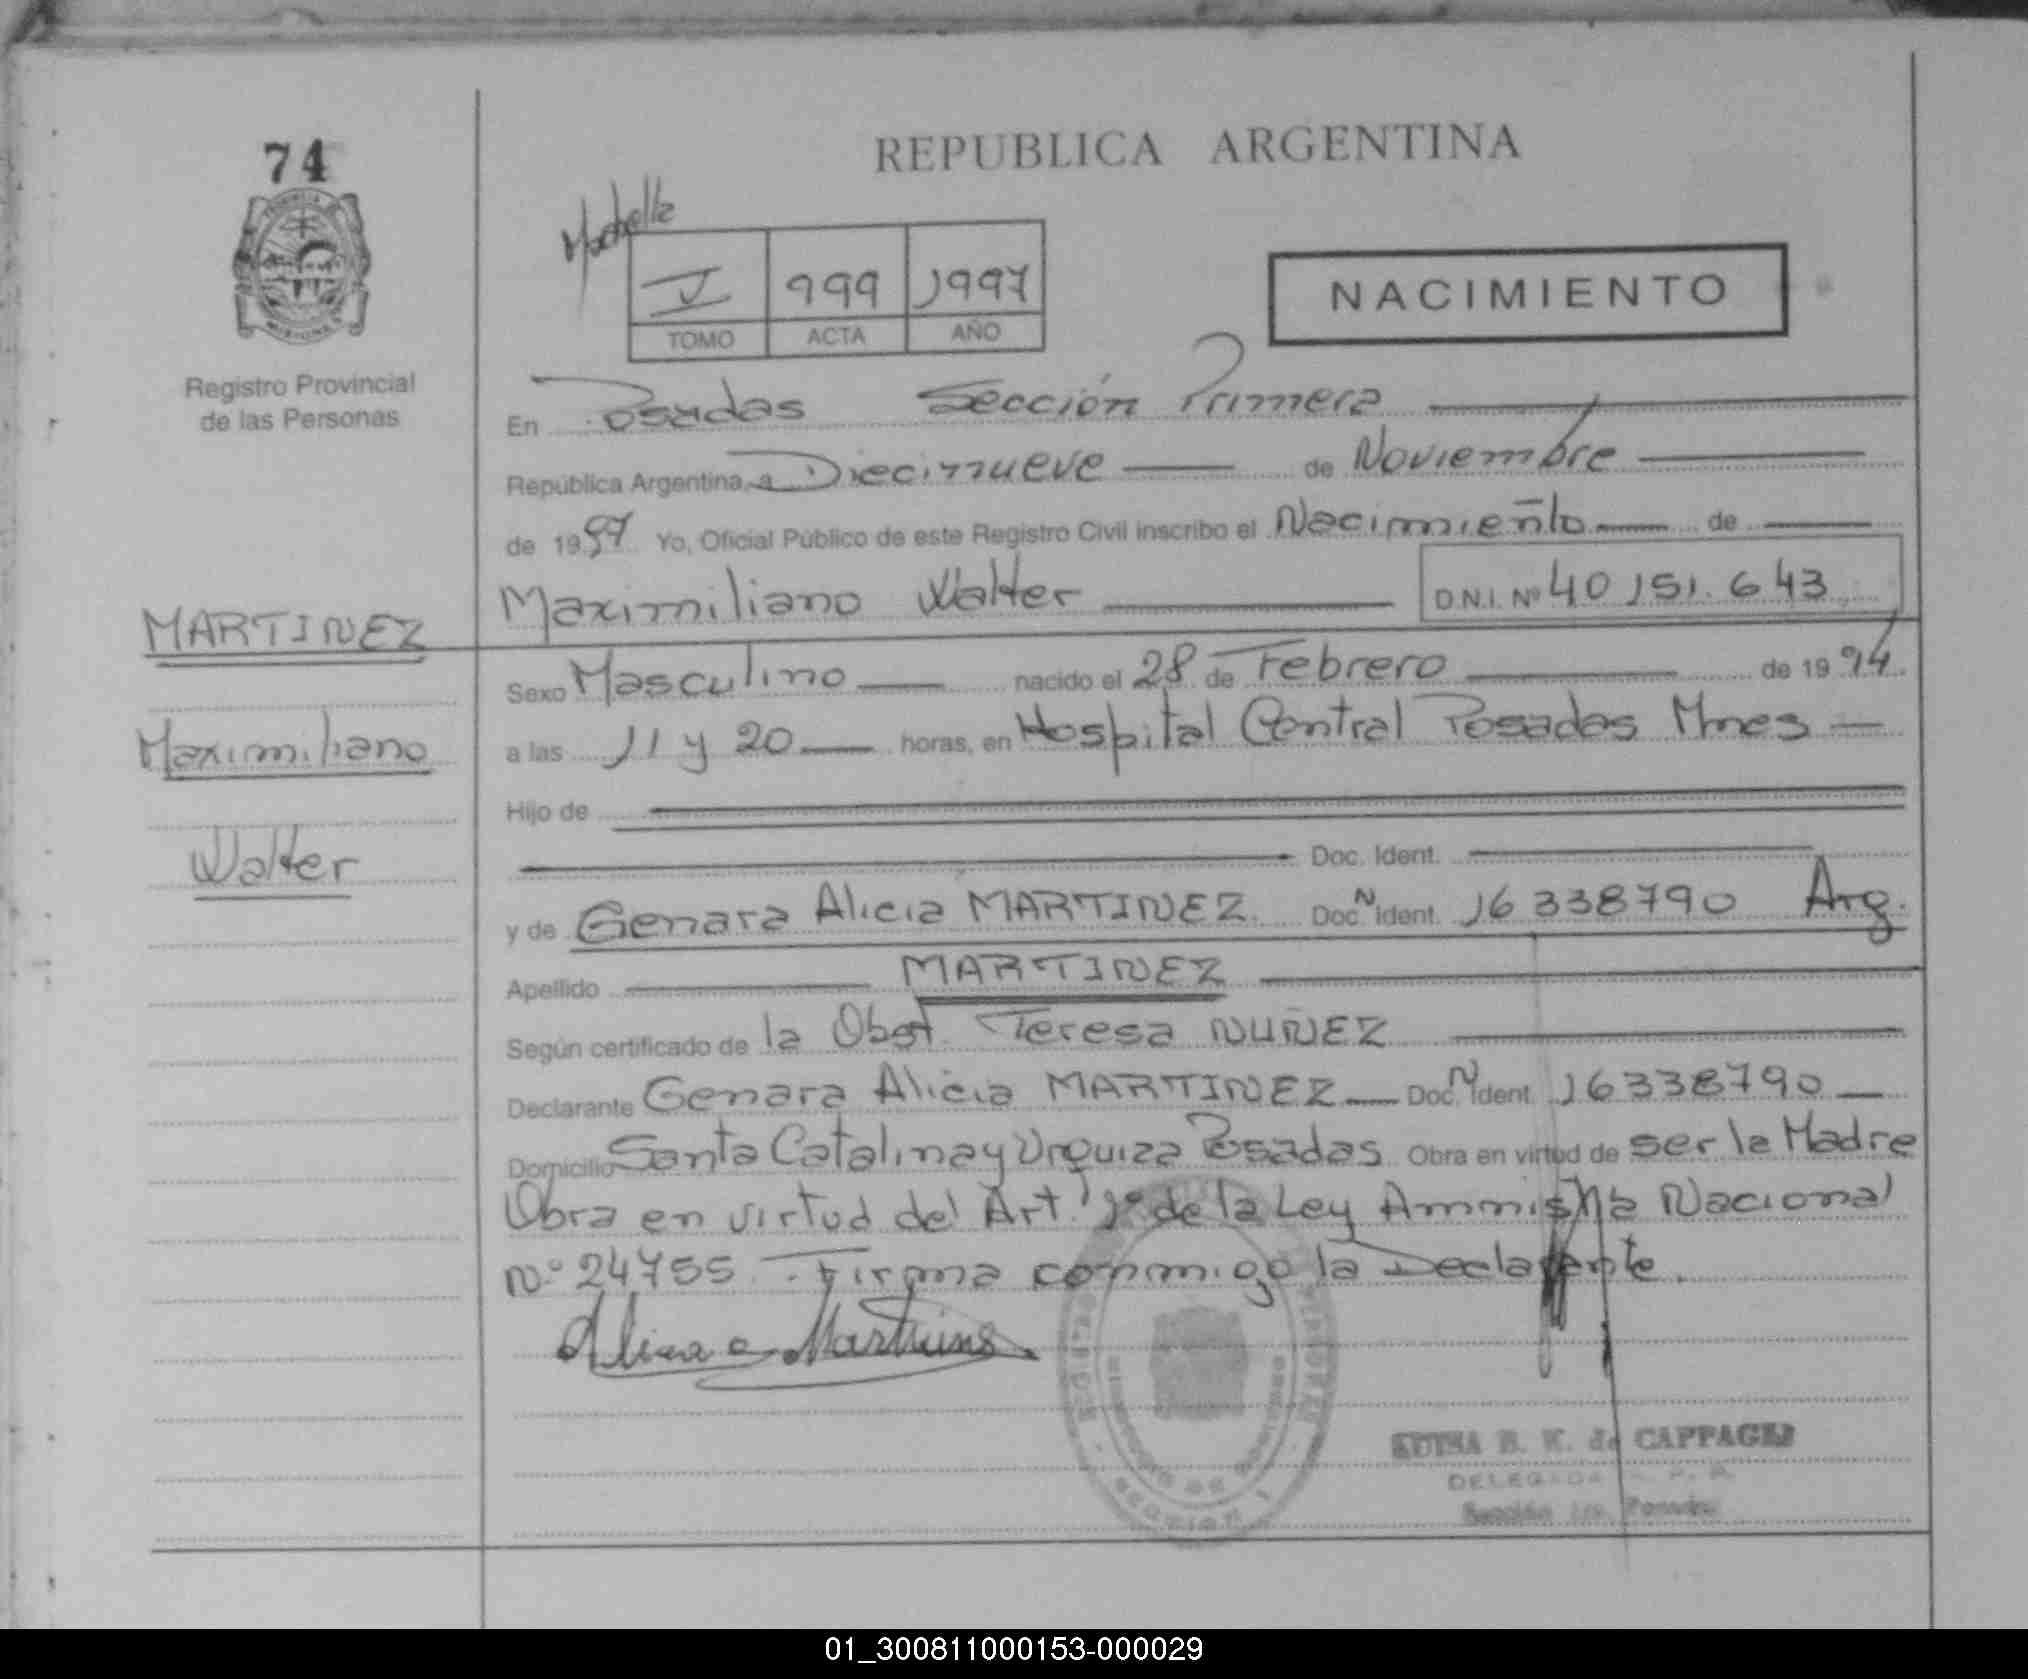 74
REPUBLICA ARGENTINA
V 999 1997
TOMO ACTA AÑO
NACIMIENTO
Registro Provincial
de las Personas
En Posadas Sección Primera
República Argentina, a Diecinueve de Noviembre
de 1997 Yo, Oficial Público de este Registro Civil inscribo el Nacimiento de
Maximiliano Walter D.N.I. Nº 40 151.643
MARTINEZ
Maximiliano
Walter
Sexo Masculino nacido el 28 de Febrero de 1994.
a las 11 y 20 horas, en Hospital Central Posadas Mnes
Hijo de
Doc. Ident.
y de Genara Alicia MARTINEZ Doc. N Ident. 16 338790 Arg.
Apellido MARTINEZ
Según certificado de la Obst. Teresa NUÑEZ
Declarante Genara Alicia MARTINEZ Doc. N Ident. 16338790
Domicilio Santa Catalina y Urquiza Posadas Obra en virtud de ser la Madre
Obra en virtud del Art. 1º de la Ley Ammistia Nacional
Nº 24755. Firma conmigo la Declarante.
DELEGADA
SECCION 1
01_300811000153-000029